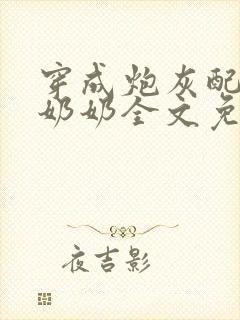 穿成炮灰配
奶奶全文免
夜吉影